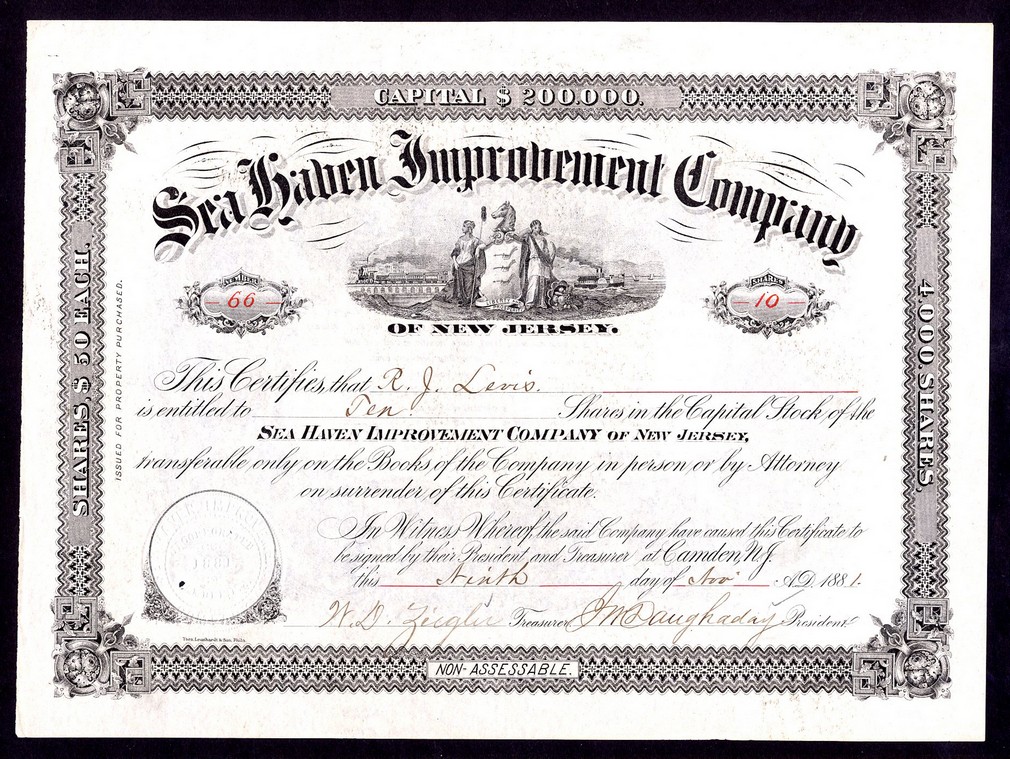 CAPITAL $ 200.000.
Sea Haven Improvement Company
NUMBER
66
SHARES
10
OF NEW JERSEY.
SHARES, $ 50 EACH.
ISSUED FOR PROPERTY PURCHASED.
4.000. SHARES,
This Certifies, that R. J. Levis.
is entitled to Ten Shares in the Capital Stock of the
SEA HAVEN IMPROVEMENT COMPANY OF NEW JERSEY,
transferable only on the Books of the Company in person or by Attorney
on surrender of this Certificate.
In Witness Whereof, the said Company have caused this Certificate to
be signed by their President and Treasurer at Camden, N.J.
this Ninth day of Nov. A.D. 1881.
W. D. Zeigler Treasurer J M Daughaday President
Theo. Leonhardt & Son, Phila.
NON-ASSESSABLE.